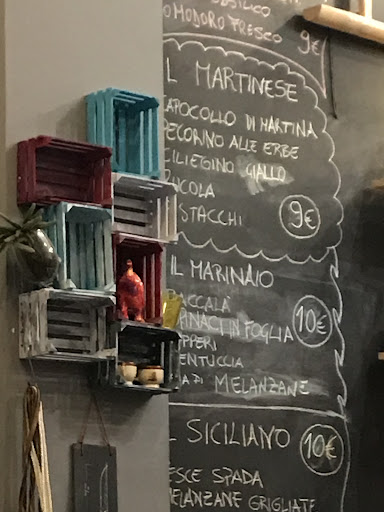 OMODORO FRESCO
9€
L MARTINESE
APOCOLLO DI MARTINA
PECORINO ALLE ERBE
CILIEGINO GIALLO
RUCOLA
STACCHI
9€
IL MARINAIO
BACCALÀ
PINACI IN FOGLIA
10€
PPERI
ENTUCCIA
DI MELANZANE
L SICILIANO
10€
ESCE SPADA
MELANZANE GRIGLIATE